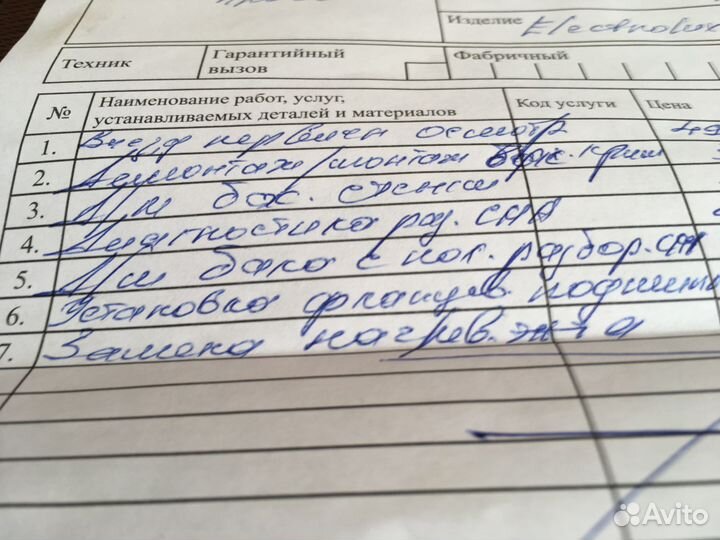 Изделие Electrolux
Техник
Гарантийный вызов
Фабричный
№
Наименование работ, услуг,
устанавливаемых деталей и материалов
Код услуги
Цена
1. Выезд первичн осмотр 49
2. Демонтаж/монтаж крыш
3. Д/м бок. стенки
4. Диагностика раз. СМА
5. Д/м бака с пол. разбор. СМА
6. Установка фланцев. подшипн
7. Замена нагрев. эл-та
Avito